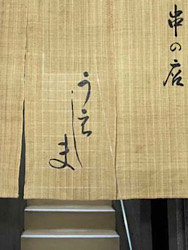 串の店
うえしま